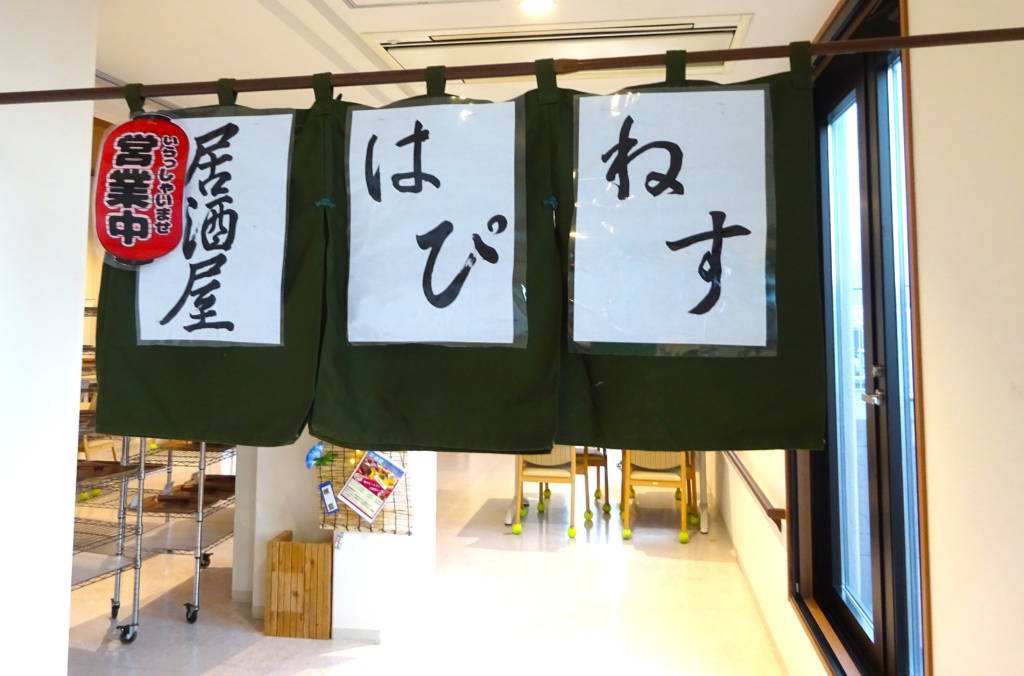 いらっしゃいませ
営業中
居酒屋
はぴ
ねす